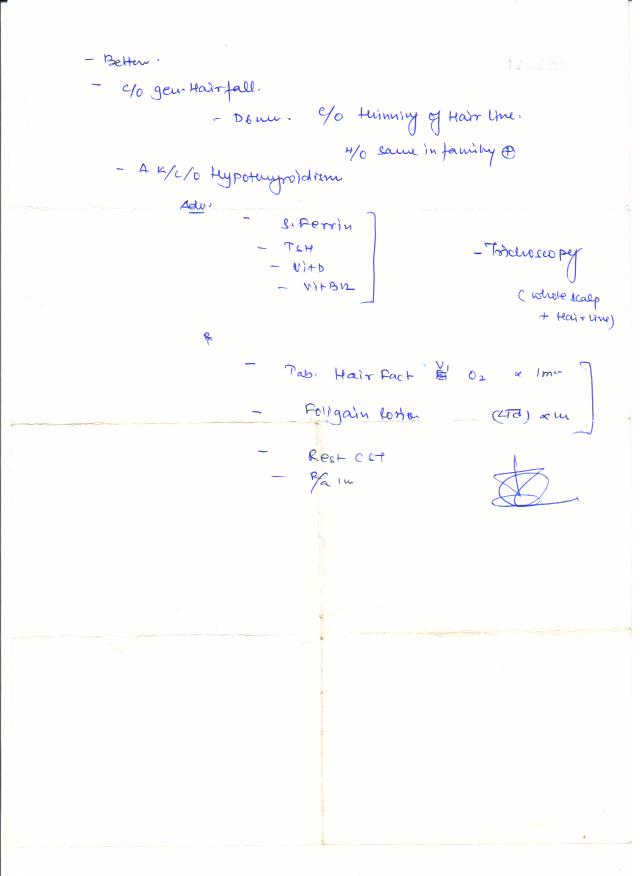 - Better.
- c/o gen. Hairfall.
- D6m. c/o thinning of Hair line.
H/o same in family ⊕
- A K/C/O Hypothyroidism
Adv.
- S. Ferrin
- TSH
- Vit D
- Vit B12
- Trichoscopy
(whole scalp
+ Hair line)
- Tab. Hair Fact O2 x 1m
- Foligain lotion (रात) x 1m
- Rest CST
- R/a 1m